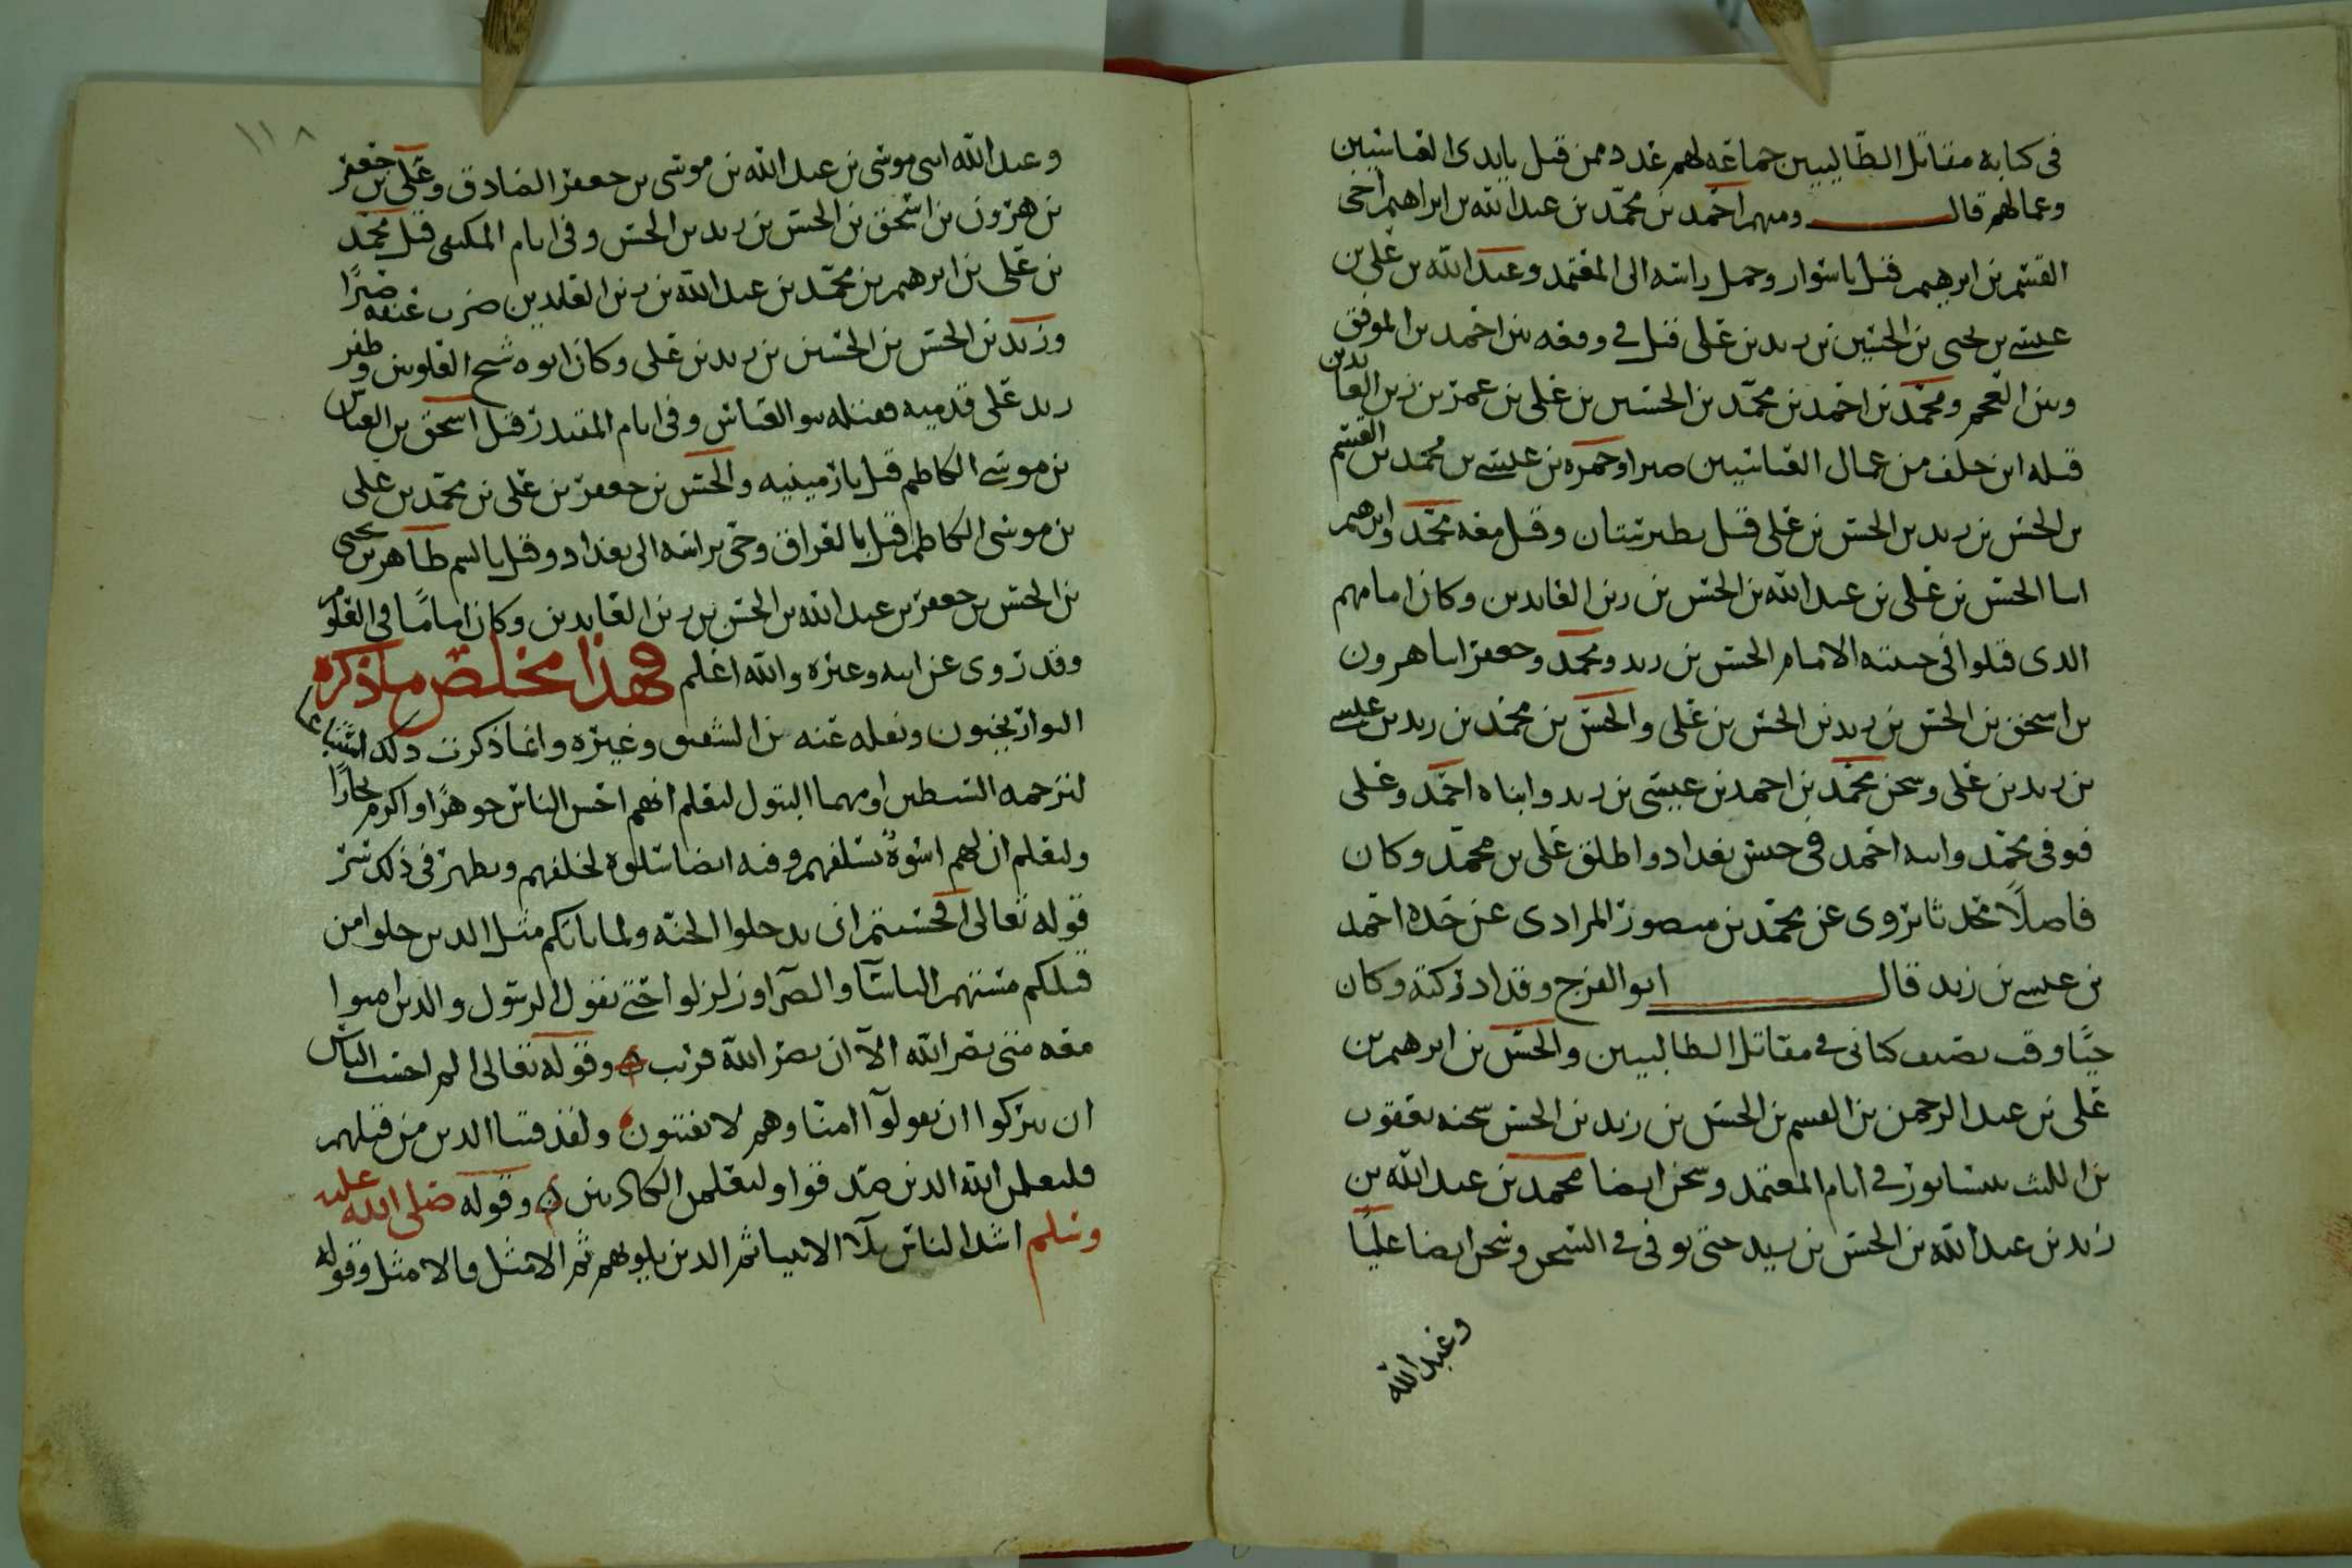 في كتابه مقاتل الطالبيين جماعه لهم عدد ممن قتل بايدى العباسيين
وعمالهم قال ومنهم احمد بن محمد بن عبد الله بن ابراهيم اخى
القسم بن ابرهيم قتل باسوار وحمل راسه الى المعتمد وعبد الله بن على بن
عيسى بن يحيى بن الحسين بن زيد بن على قتل في وقعه بين احمد بن الموفق
وبين العجم ومحمد بن احمد بن محمد بن الحسين بن على بن عمر بن زين العابدين
قتله ابن خلف من عمال العباسيين صبرا وحمزه بن عيسى بن محمد بن القسم
بن الحسن بن زيد بن الحسن بن على قتل بطبرستان وقتل معه محمد وابرهيم
ابنا الحسن بن على بن عبد الله بن الحسن بن زين العابدين وكان امامهم
الذى قتلوا في حبسه الامام الحسن بن زيد ومحمد وجعفر ابنا هرون
بن اسحق بن الحسن بن زيد بن الحسن بن على والحسن بن محمد بن زيد بن عيسى
بن زيد بن على وسجن محمد بن احمد بن عيسى بن زيد وابناه احمد وعلى
فتوفى محمد وابنه احمد في حبس بغداد واطلق على بن محمد وكان
فاضلًا محدثا يروى عن محمد بن منصور المرادى عن جده احمد
بن عيسى بن زيد قال ابو الفرج وقد ادركته وكان
حيًا وقت تصنيف كتابى في مقاتل الطالبيين والحسن بن ابرهيم بن
على بن عبد الرحمن بن القسم بن الحسن بن زيد بن الحسن سجنه يعقوب
بن الليث بنيسابور في ايام المعتمد وسجن ايضا محمد بن عبد الله بن
زيد بن عبد الله بن الحسن بن زيد حتى توفى في السجن وسجن ايضا عليًا
وعبد الله
١١٨
وعبد الله ابنى موسى بن عبد الله بن موسى بن جعفر الصادق وعلى بن جعفر
بن هرون بن اسحق بن الحسن بن زيد بن الحسن وفى ايام المكتفى قتل محمد
بن على بن ابرهيم بن محمد بن عبد الله بن زين العابدين ضرب عنقه صبرًا
وزيد بن الحسن بن الحسين بن زيد بن على وكان ابوه شيخ العلويين وظفر
زيد على قدميه فقتله بنو العباس وفى ايام المقتدر قتل اسحق بن العباس
بن موسى الكاظم قتل بارمينيه والحسن بن جعفر بن على بن محمد بن على
بن موسى الكاظم قتل بالعراق وجى براسه الى بغداد وقتل بالسم طاهر بن يحيى
بن الحسن بن جعفر بن عبد الله بن الحسن بن زين العابدين وكان امامًا في العلوم
وقد روى عن ابيه وغيره والله اعلم فهذا مخلص ما ذكره
المؤاريخيون ونقله عنه من الشقيق وغيره وانما ذكرت ذلك استتباعا
لترجمه السبطين اومهما البتول لتعلم انهم اخس الناس جوهرًا واكرم نجارًا
ولتعلم ان لهم اسوة بسلفهم وفيه ايضا سلوة لخلفهم ويظهر في ذلك سر
قوله تعالى ام حسبتم ان تدخلوا الجنه ولما ياتكم مثل الذين خلوا من
قبلكم مستهم الباسآ والضرآ وزلزلوا حتى يقول الرسول والذين امنوا
معه متى نصر الله الآ ان نصر الله قريب وقوله تعالى الم احسب الناس
ان يتركوا ان يقولوآ امنا وهم لا يفتنون ولقد فتنا الذين من قبلهم
فليعلمن الله الذين صدقوا وليعلمن الكاذبين وقوله صلى الله عليه
وسلم اشد الناس بلآ الانبيا ثم الذين يلونهم ثم الامثل فالامثل وقوله